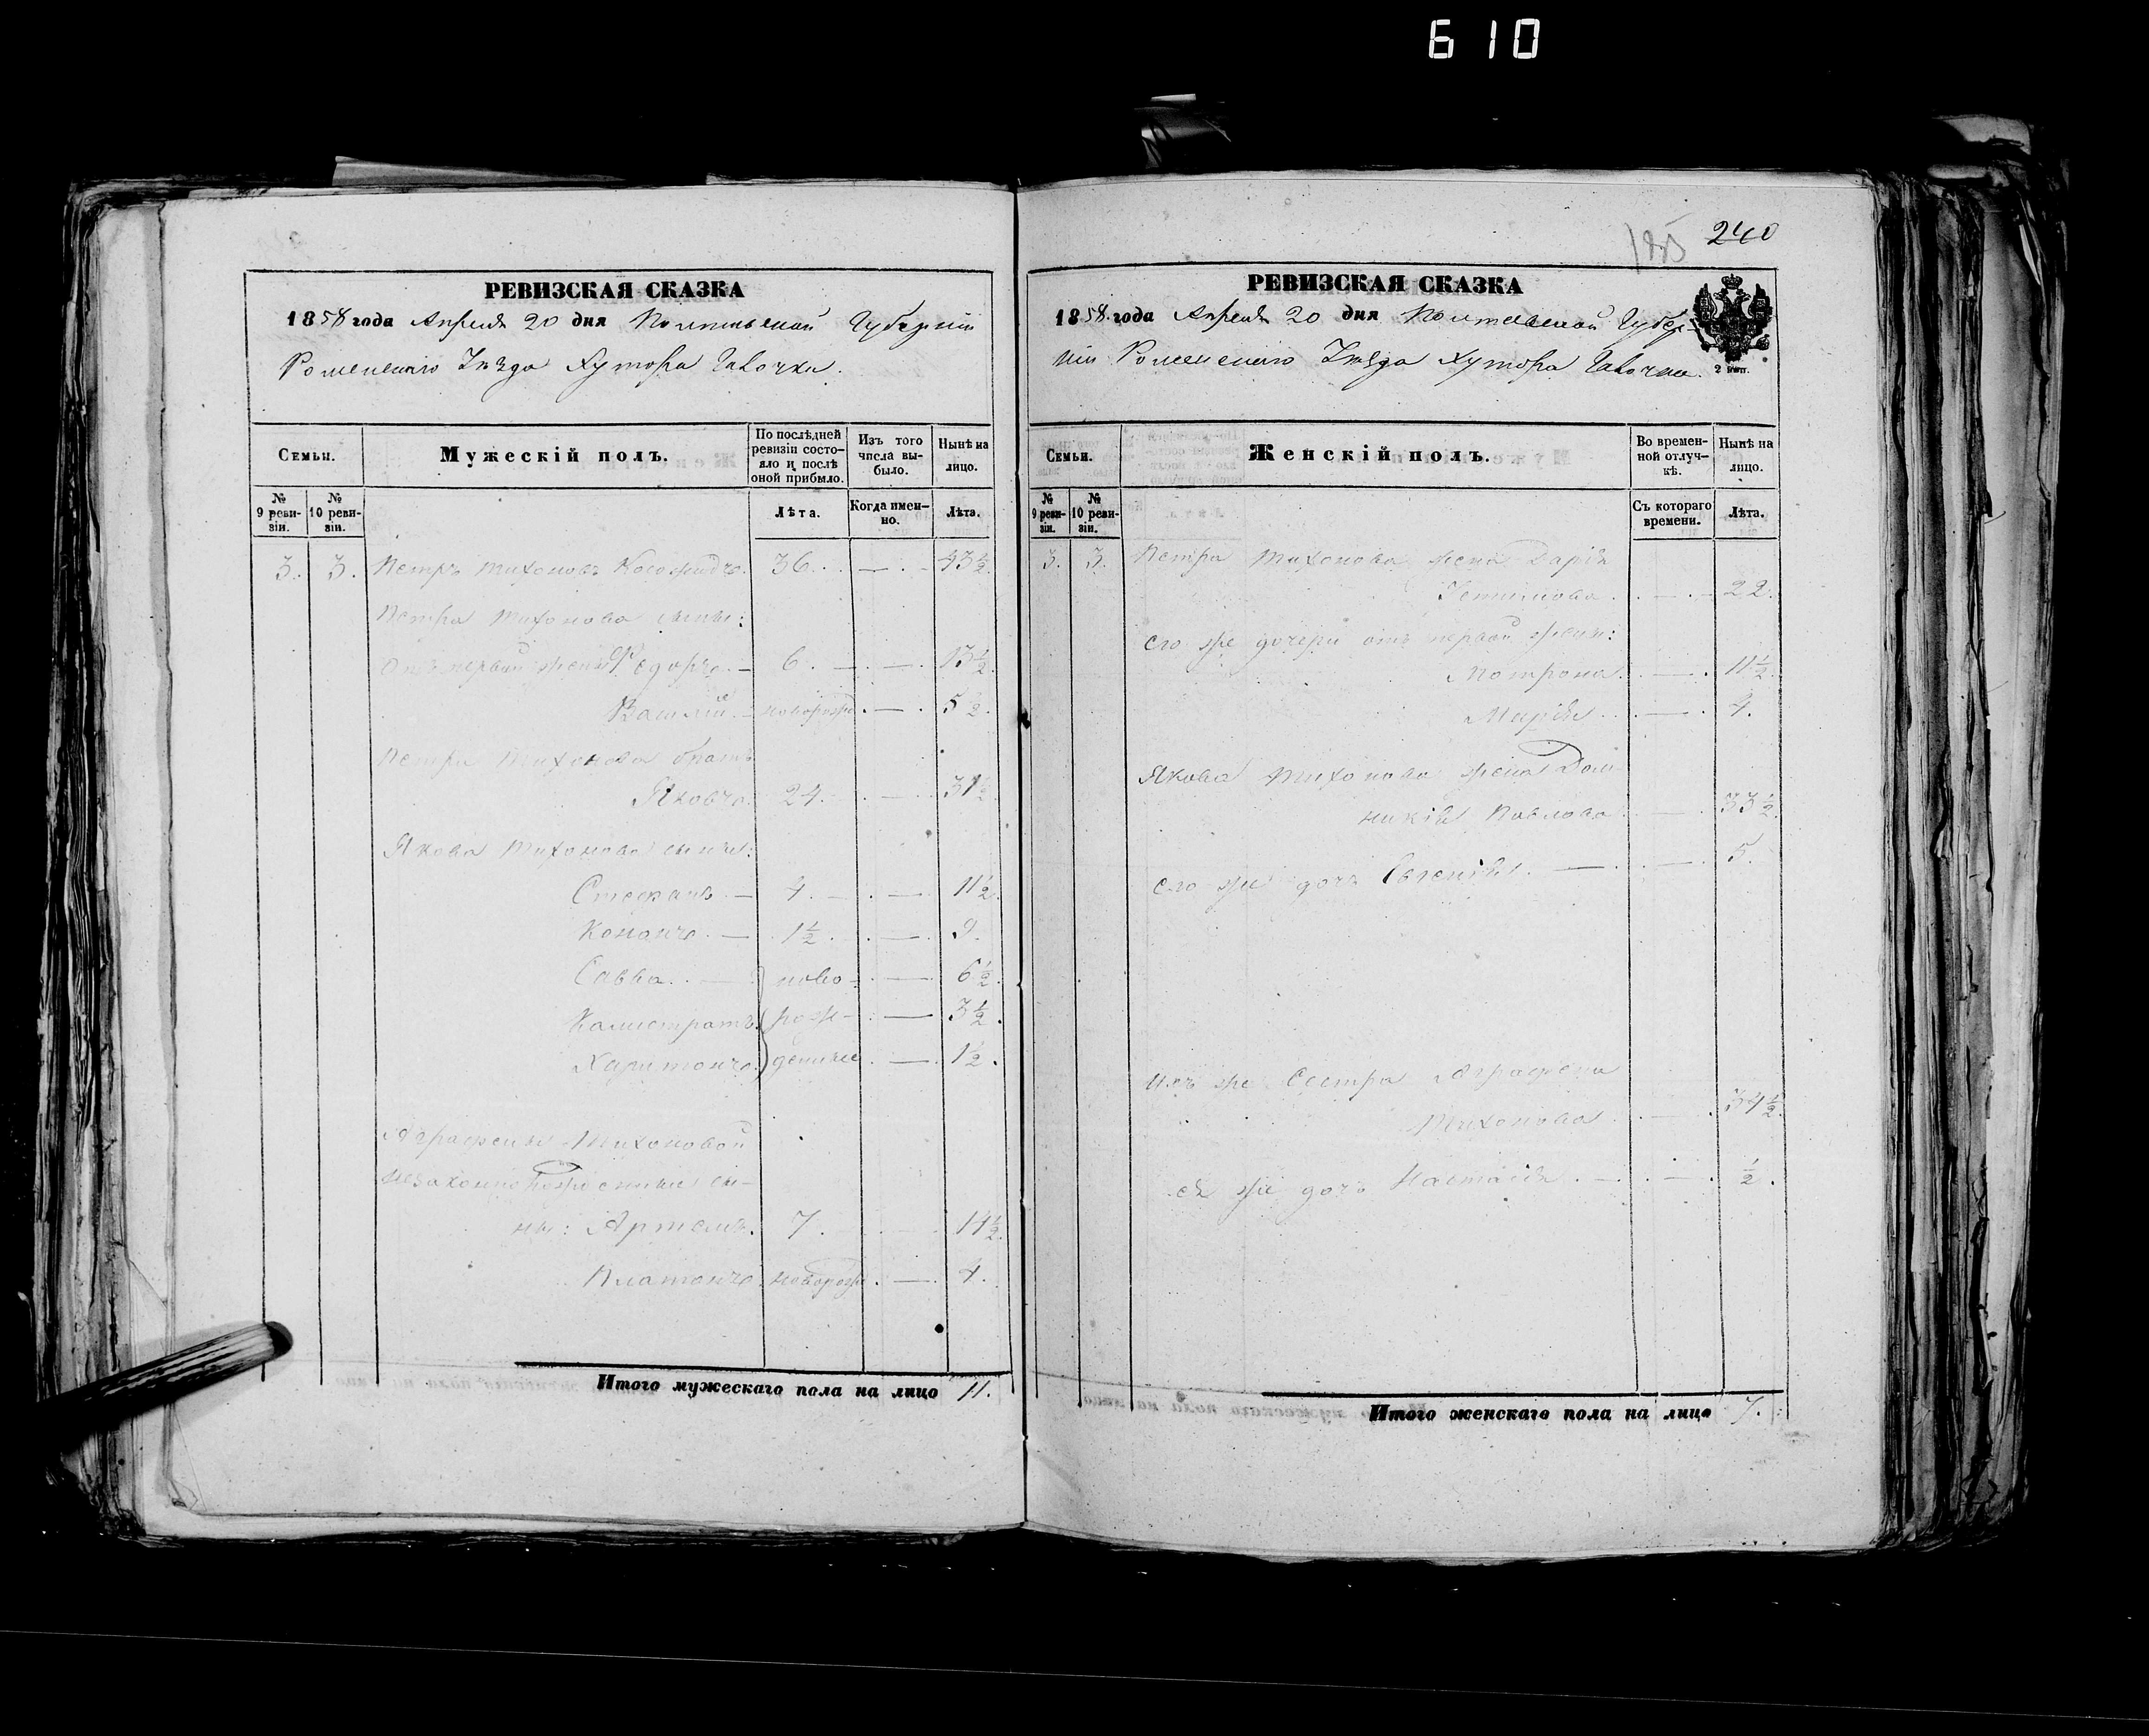 610
РЕВИЗСКАЯ СКАЗКА
1858 года Апреля 20 дня Полтавской Губерніи
Роменскаго Уѣзда Хутора
Семьи.
Мужескій полъ.
По послѣдней ревизіи состояло и послѣ оной прибыло.
Изъ того числа выбыло.
Нынѣ на лицо.
№ 9 ревизіи.
№ 10 ревизіи.
Лѣта.
Когда именно.
Лѣта.
3. 3. Петръ Тихоновъ 36. 43½.
Петра Тихонова сыны:
Отъ первой жены Ѳедоръ. 6. 13½.
Василій новорожд. 5½.
Петра Тихонова братъ
Яковъ. 24. 31½
Якова Тихонова сыны:
Стефанъ 4. 11½.
Кононъ. 1½. 9.
Савва. ново- 6½.
Калистратъ. рож- 3½.
Харитонъ. денные 1½.
Аграфены Тихоновой
незаконнорожденные сы-
ны: Артемъ. 7. 14½.
Платонъ новорож. 4.
Итого мужескаго пола на лицо 11.
185 240
РЕВИЗСКАЯ СКАЗКА
1858 года Апреля 20 дня Полтавской Губер-
ніи Роменскаго Уѣзда Хутора
2 коп.
Семьи.
Женскій полъ.
Во временной отлучкѣ.
Нынѣ на лицо.
№ 9 ревизіи.
№ 10 ревизіи.
Съ котораго времени.
Лѣта.
3. 3. Петра Тихонова жена Дарія
Устимова. 22.
его же дочери отъ первой жены:
Мотрона. 11½.
Марія. 4.
Якова Тихонова жена Дом-
никія Павлова 33½.
его же дочь Евгенія. 5.
ихъ же Сестра Аграфена
Тихонова. 34½.
ея же дочь Настасія. ½.
Итого женскаго пола на лицо 7.